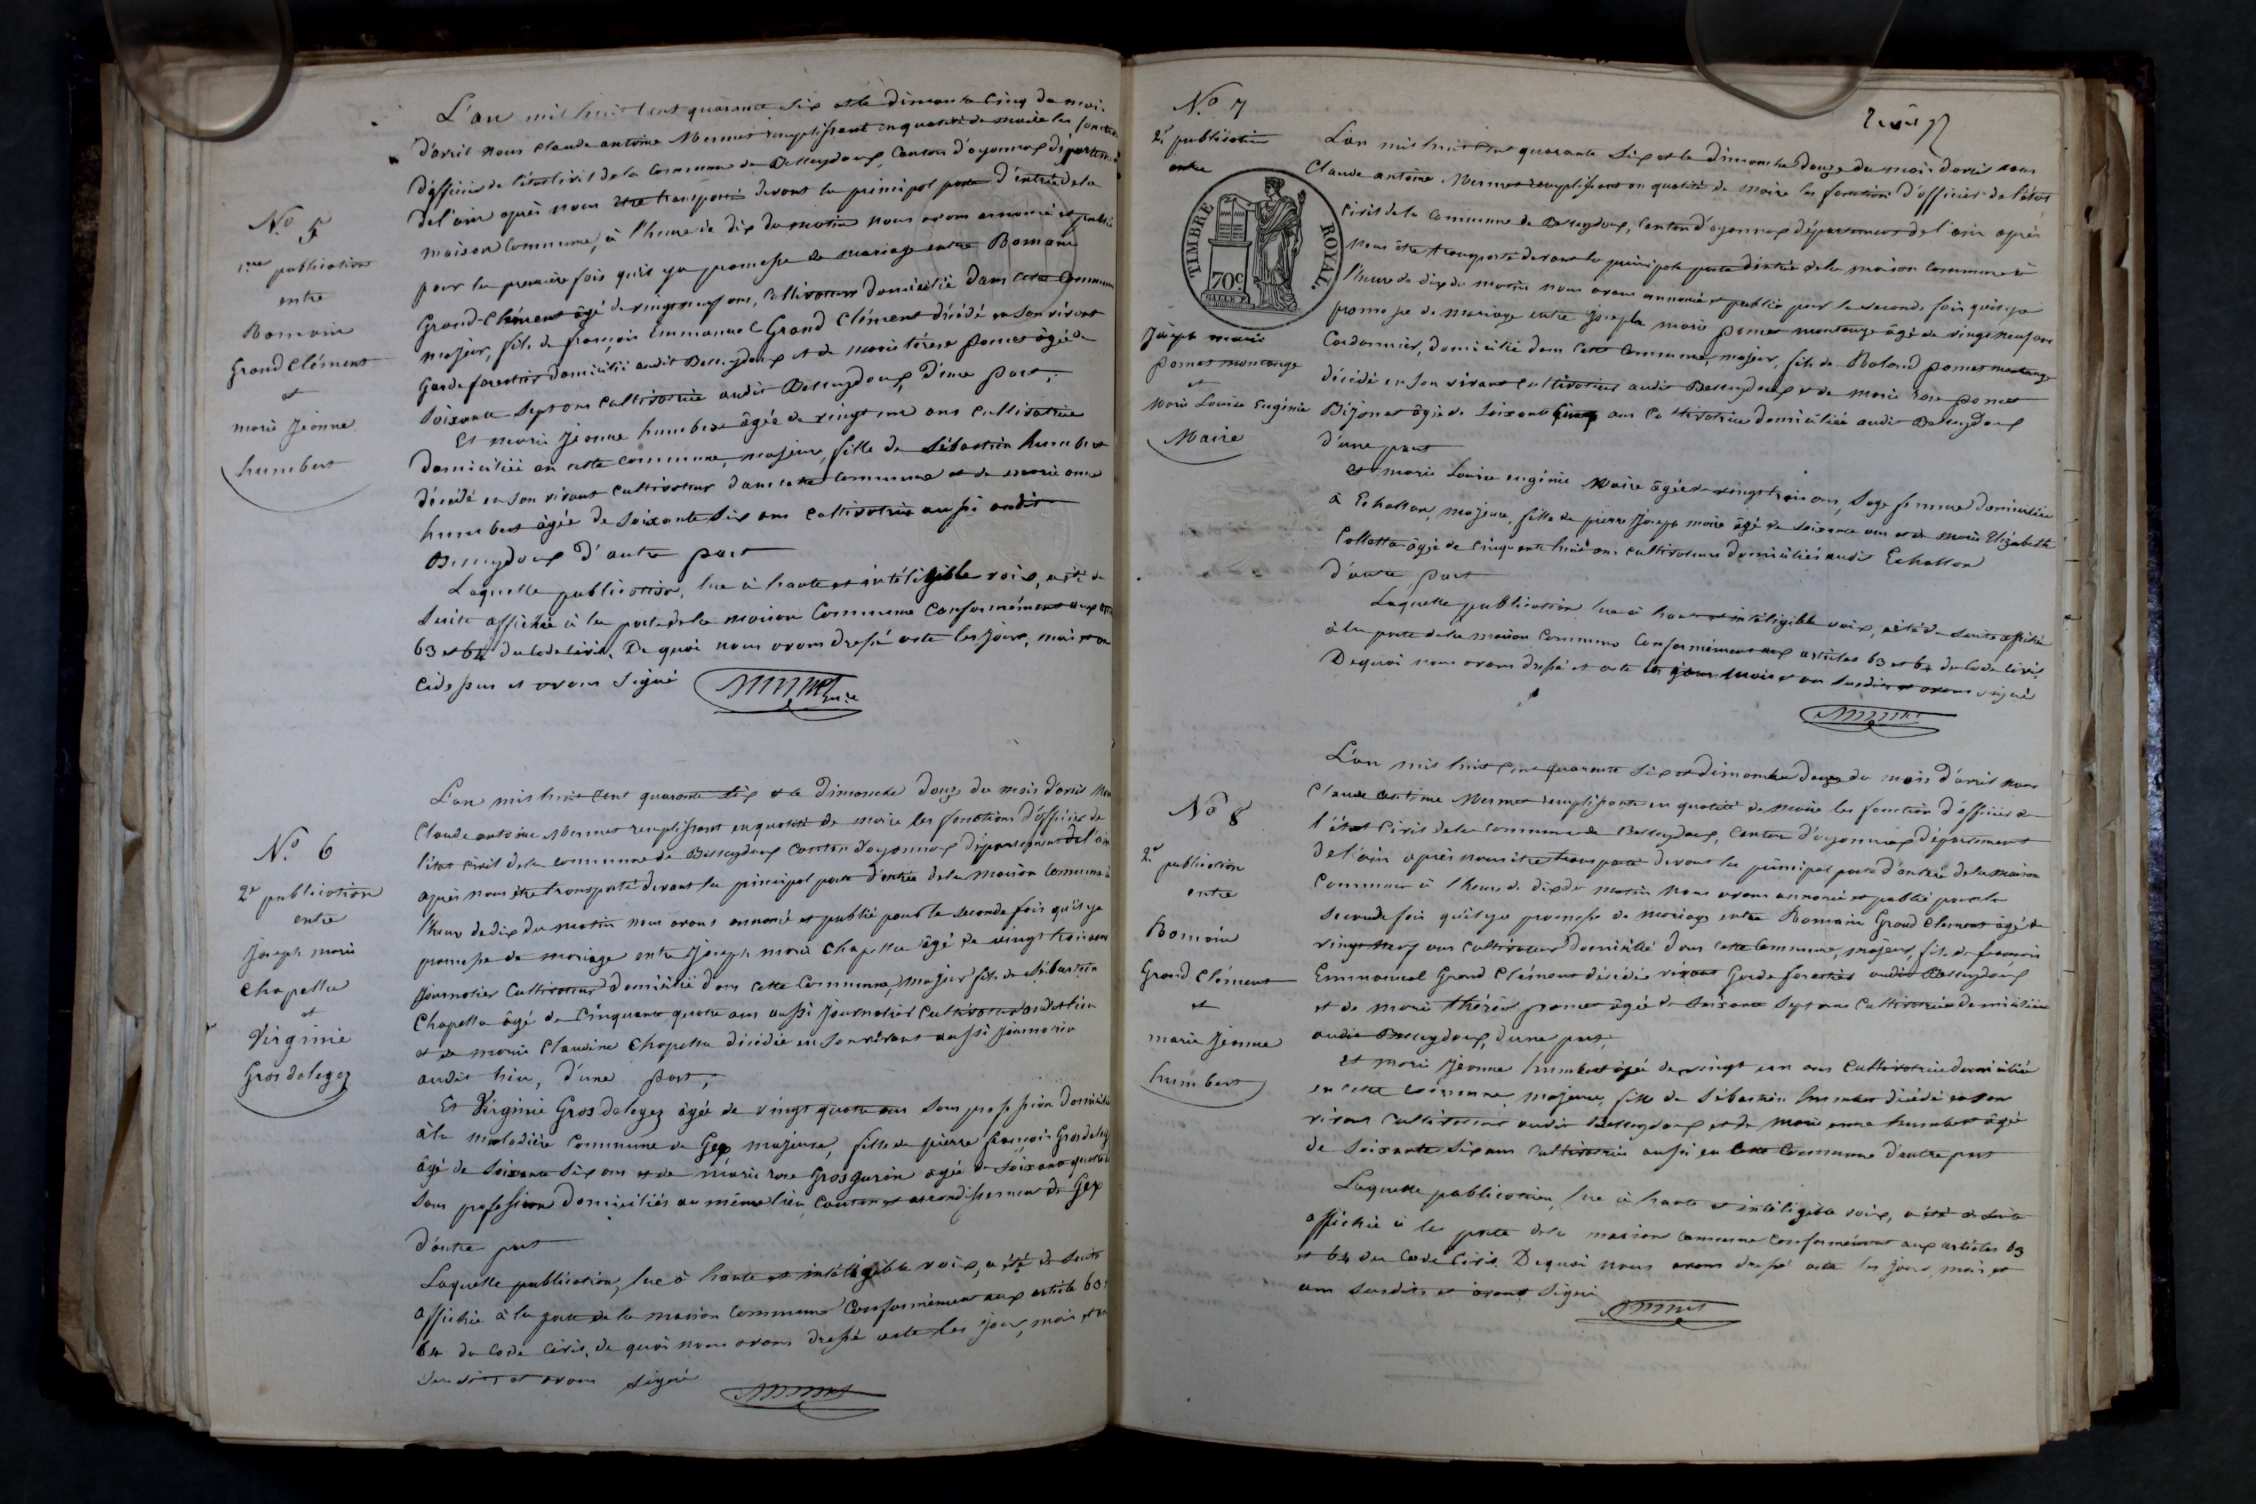 L'an mil huit cent quarante six et le dimanche cinq du mois
d'avril nous Claude antoine Mermet remplissant en qualité de maire les fonctions
d'officier de l'état civil de la commune de Belleydoux, Canton d'oyonnax département
de l'ain après nous être transporté devant la principal porte d'entrée de la
maison commune, à l'heure de dix du matin nous avons annoncé et publié
pour la première fois qu'il y a promesse de mariage entre Romain
Grand-Clément âgé de vingt neuf ans, Cultivateur domicilié dans cette commune
majeur, fils de françois Emmanuel Grand Clément décédé en son vivant
Garde forestier domicilié audit Belleydoux et de marie térèse pomet âgée de
soixante sept ans cultivatrice audit Belleydoux, d'une part,
Et marie Jeanne humbert âgée de vingt un ans cultivatrice
domiciliée en cette commune, majeure, fille de Sébastien humbert
décédé en son vivant cultivateur dans cette commune et de marie anne
humbert âgée de soixante six ans cultivatrice aussi audit
Belleydoux d'autre part
Laquelle publication, lue à haute et intéligible voix, a été de
suite affichée à la porte de la maison commune conformément aux art
63 et 64 du code civil. De quoi nous avons dressé acte les jour, mois et an
cidessus et avons signé
Mermet
No 5
1ère publication
entre
Romain
Grand Clément
et
marie Jeanne
humbert
L'an mil huit cent quarante six et le dimanche douze du mois d'avril nous
Claude antoine Mermet remplissant en qualité de maire les fonctions d'officier de
l'état civil de la commune de Belleydoux Canton d'oyonnax département de l'ain
après nous être transporté devant la principal porte d'entrée de la maison commune à
l'heure de dix du matin nous avons annoncé et publié pour la seconde fois qu'il y a
promesse de mariage entre Joseph marie Chapellu âgé de vingt trois ans
Journalier Cultivateur domicilié dans cette Commune, majeur fils de Sébastien
Chapellu âgé de cinquante quatre ans aussi Journalier Cultivateur audit lieu
et de marie Claudine Chapellu décédée en son vivant aussi Journalier
audit lieu, d'une part,
Et Virginie Gros delegez âgée de vingt quatre ans sans profession domiciliée
à la maladière commune de Gex, majeure, fille de pierre françois Grosdelegez
âgé de soixante six ans et de marie rose Grosgurin agée de soixante quatre
sans profession domiciliés au même lieu, canton et arrondissement de Gex
d'autre part
Laquelle publication, lue à haute et intéligible voix, a été de suite
affichée à la porte de la maison commune conformément aux article 63
64 du Code Civil, de quoi nous avons dressé acte les jour, mois et an
susdits et avons signé
Mermet
No 6
2e publication
entre
Joseph marie
Chapellu
et
Virginie
Gros delegez
No 7
2e publication
entre
TIMBRE ROYAL.
70c
Joseph marie
pomet montange
et
Marie Louise Eugénie
Maire
L'an mil huit cent quarante six et le dimanche douze du mois d'avril nous
Claude antoine Mermet remplissant en qualité de maire les fonction d'officier de l'état
civil de la commune de Belleydoux, Canton d'oyonnax département de l'ain après
nous être transporté devant la principale porte d'entrée de la maison commune à
l'heure de dix du matin nous avons annoncé et publié pour la seconde fois qu'il y a
promesse de mariage entre Joseph marie pomet montange âgé de vingt neuf ans
Cordonnier, domicilié dans cette commune, majeur, fils de Roland pomet montange
décédé en son vivant cultivateur audit Belleydoux et de marie rose pomet
Bijonet âgée de soixante cinq ans cultivatrice domiciliée audit Belleydoux
d'une part
Et marie Louise eugénie Maire âgée de vingt trois ans, Sage femme domiciliée
à Echallon, majeure, fille de pierre Joseph maire âgé de soixante ans et de marie Elizabeth
Colletta âgée de cinquante huit ans cultivateurs domiciliés audit Echallon
d'autre part
Laquelle publication lue à haute et intéligible voix, a été de suite affichée
à la porte de la maison commune conformément aux articles 63 et 64 du code civil
De quoi nous avons dressé et acte les jour mois et an susdits et avons signé
Mermet
No 8
2e publication
entre
Romain
Grand Clément
et
marie Jeanne
humbert
L'an mil huit cent quarante six et dimanche douze du mois d'avril nous
Claude antoine Mermet remplissante en qualité de maire les fonction d'officier de
l'état civil de la commune de Belleydoux, Canton d'oyonnax département
de l'ain après nous être transporté devant la principal porte d'entrée de la maison
commune à l'heure de dix du matin nous avons annoncé et publié pour la
seconde fois qu'il y a promesse de mariage entre Romain Grand Clément âgé de
vingt neuf ans cultivateur domicilié dans cette commune, majeur, fils de françois
Emmanuel Grand Clément décédé vivant Garde forestier audit Belleydoux
et de marie thérèse pomet âgée de soixante sept ans cultivatrice domiciliée
audit Belleydoux, d'une part,
et marie Jeanne humbert âgée de vingt un ans cultivatrice domiciliée
en cette commune, majeure, fille de Sébastien humbert décédé en son
vivant cultivateur audit Belleydoux et de marie anne humbert âgée
de soixante six ans cultivatrice aussi en cette Commune d'autre part
Laquelle publication, lue à haute et intéligible voix, a été de suite
affichée à la porte de la maison commune conformément aux articles 63
et 64 du Code Civil. De quoi nous avons dressé acte les jour, mois et
an susdits et avons signé
Mermet